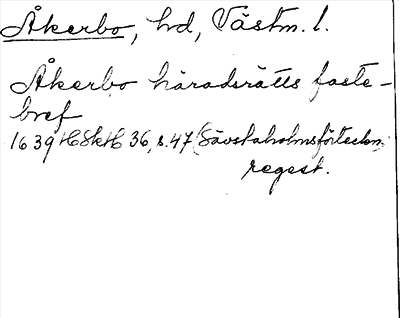 Åkerbo, hd, Västm. l.
Åkerbo häradsrätts faste-
bref
1639 HSkH 36, s. 47 (Sävstaholmsförteckn.)
regest.